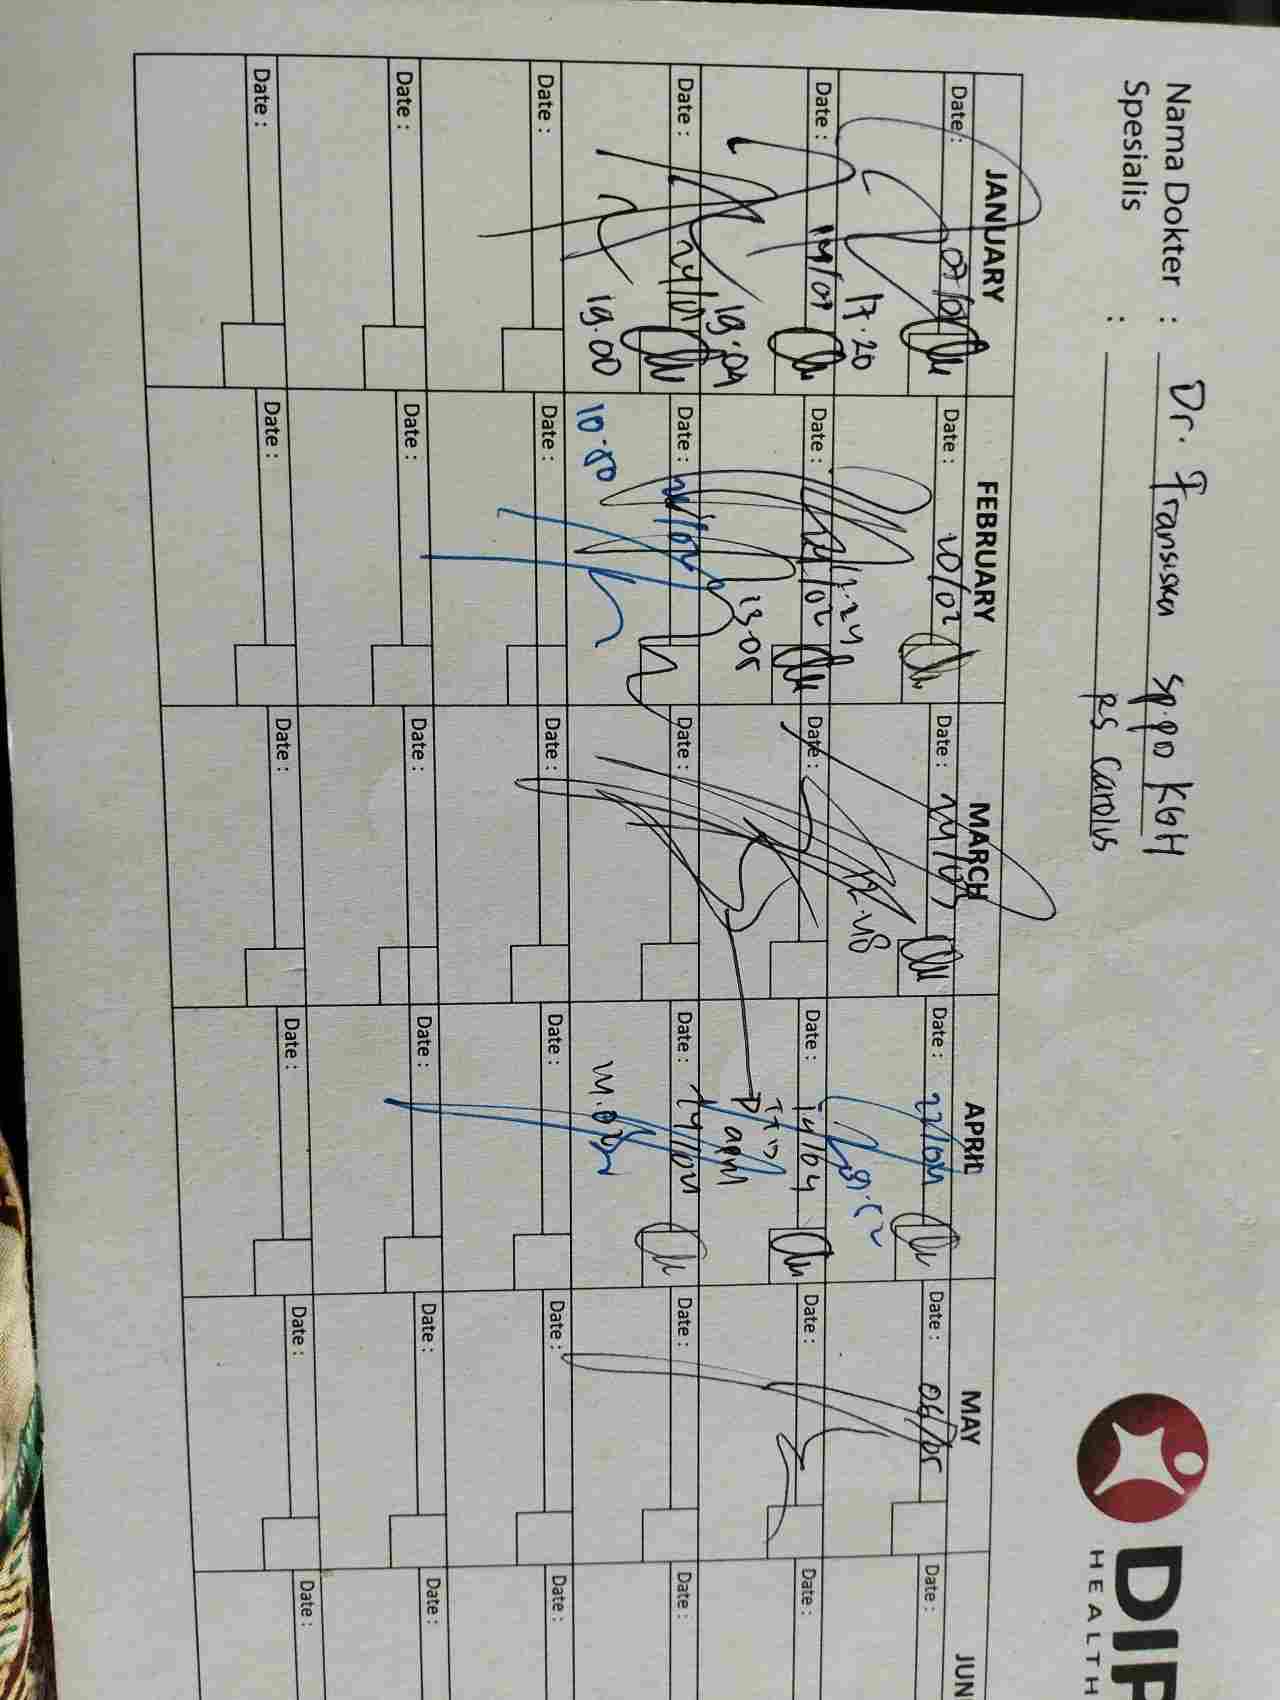 Nama Dokter : Dr. Fransiska Sp.PD KGH
Spesialis : RS Carolus
DIP
HEALTH
JANUARY FEBRUARY MARCH APRIL MAY JUN
Date : 07/01 Date : 10/02 Date : 24/03 Date : 22/04 Date : 06/05 Date :
17.20 17.24
Date : 14/01 Date : 24/02 Date : Date : 14/04 Date : Date :
19.04 13.05 TTD
Date : 24/01 Date : Date : Date : 24/04 Date : Date :
19.00
Date : Date : Date : Date : Date : Date :
Date : Date : Date : Date : Date : Date :
Date : Date : Date : Date : Date : Date :